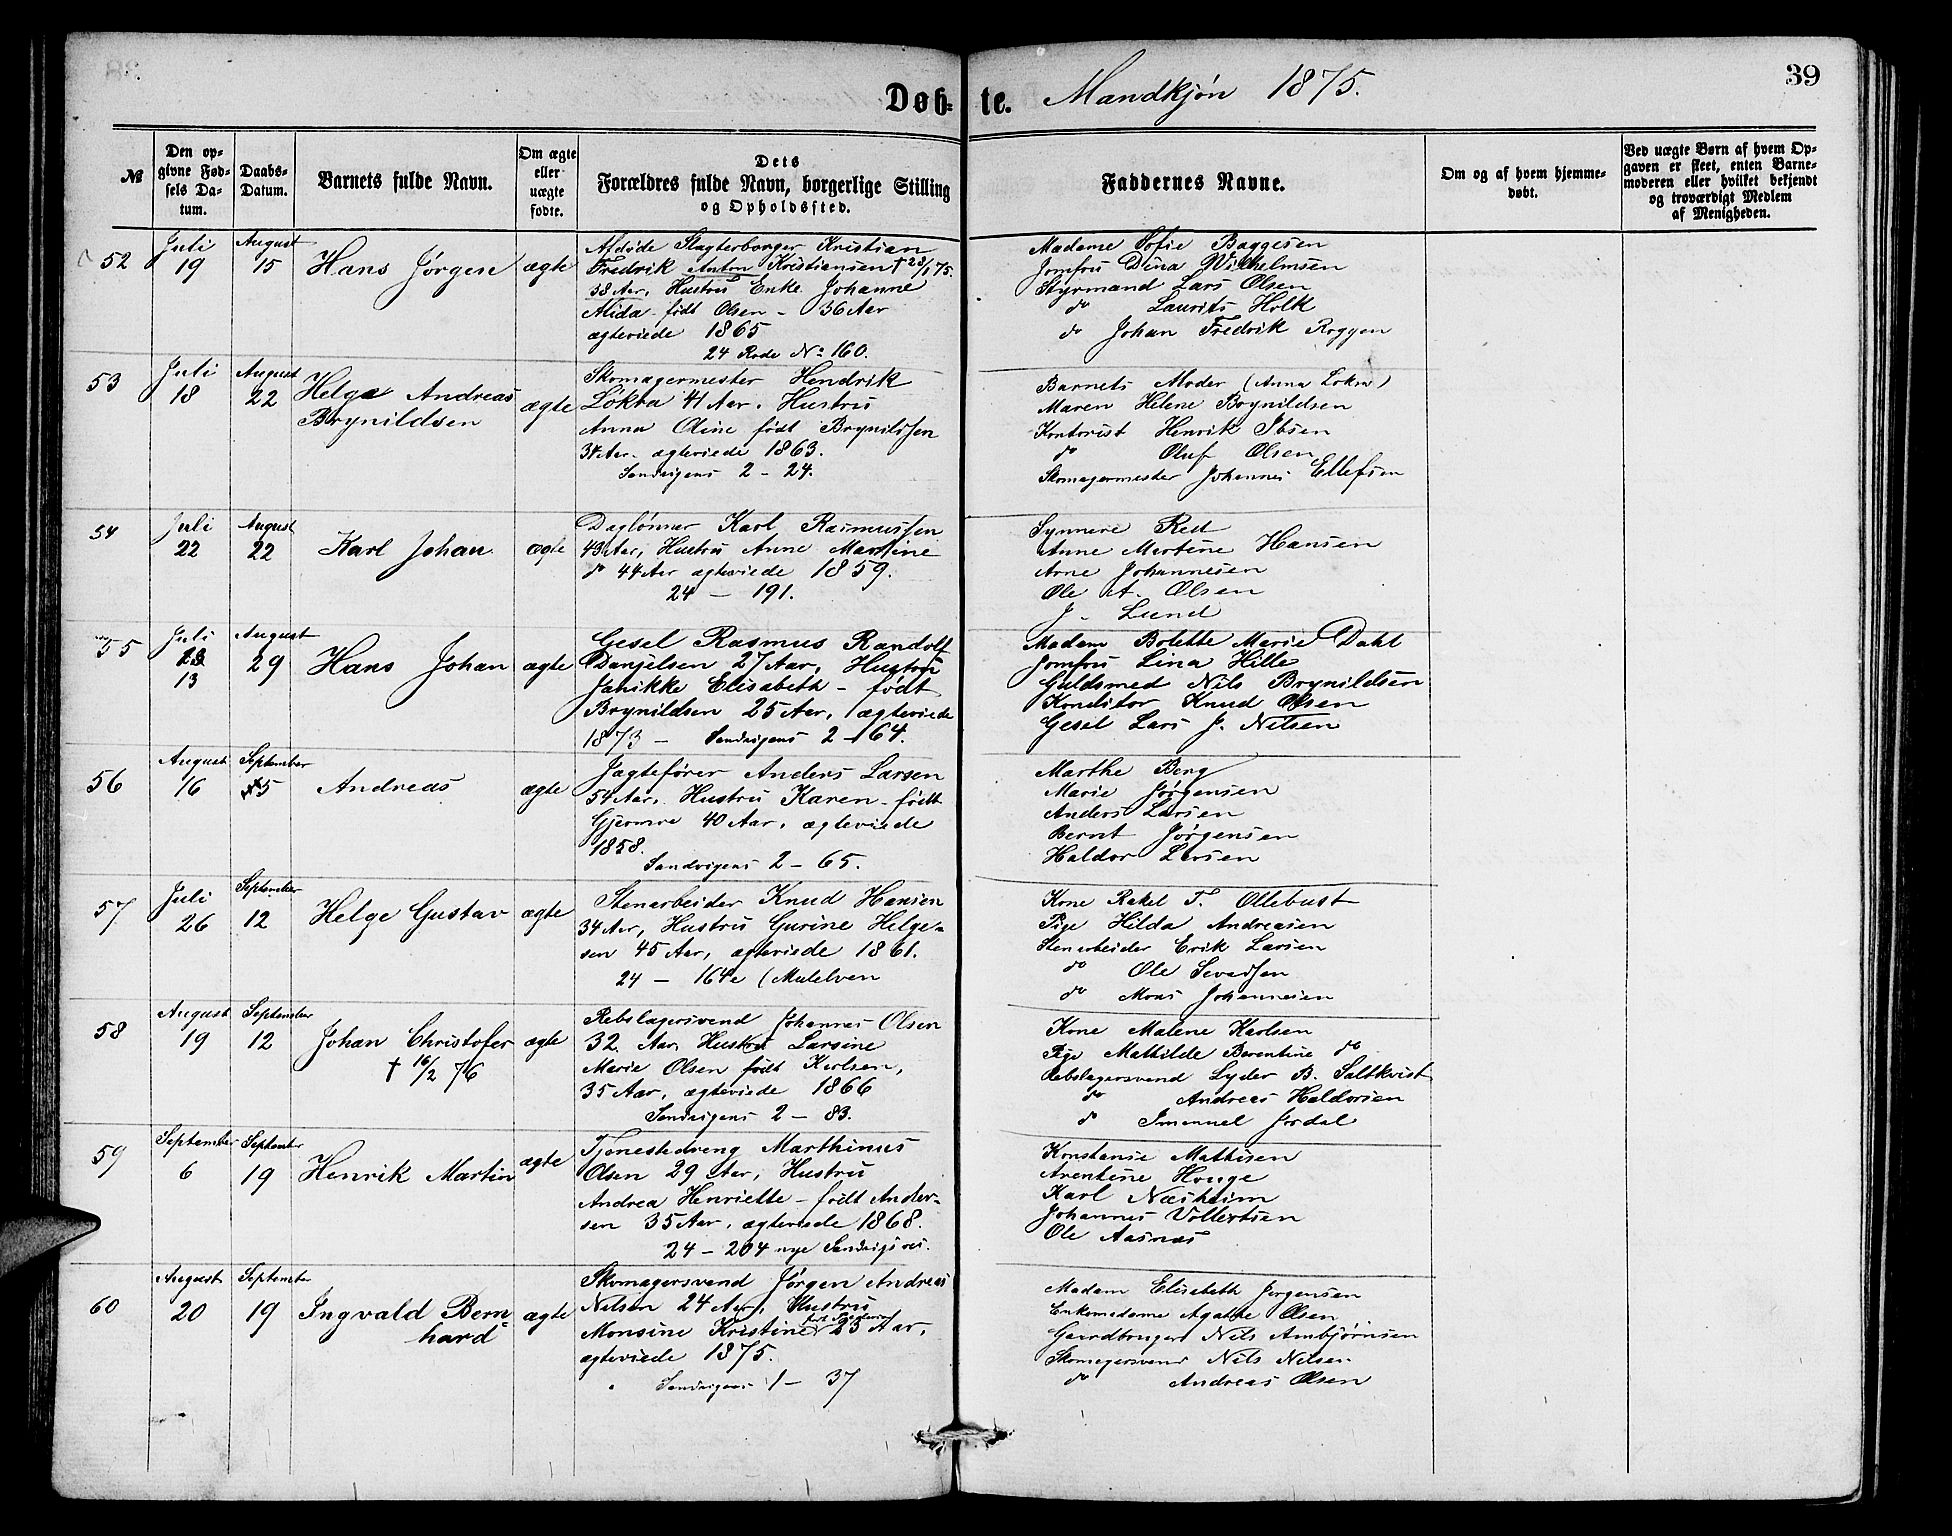 Døb- te. Mandkjøn 1875. 39
№
Den op-
givne Fød-
sels Da-
tum.
Daabs-
Datum.
Barnets fulde Navn.
Om ægte
eller
uægte
fødte.
Dets
Forældres fulde Navn, borgerlige Stilling
og Opholdssted.
Faddernes Navne.
Om og af hvem hjemme-
døbt.
Ved uægte Børn af hvem Op-
gaven er skeet, enten Barne-
moderen eller hvilket bekjendt
og troværdigt Medlem
af Menigheden.
52
Juli
19
August
15
Hans Jørgen
ægte
Afdøde Slagterborger Kristian
Fredrik Anton Kristiansen † 28/1 75.
38 Aar, Hustru Enke Johanne
Alida - født Olsen - 36 Aar
ægteviede 1865
24 Rode No 160.
Madame Sofie Baggesen
Jomfru Dina Wilhelmsen
Styrmand Lars Olsen
do Laurits Holk
do Johan Fredrik Roggen
53
Juli
18
August
22
Helge Andreas
Brynildsen
ægte
Skomagermester Hendrik
Lokta 41 Aar. Hustru
Anna Oline født Brynildsen
34 Aar. ægteviede 1863.
Sandvigens 2 - 24.
Barnets Moder (Anna )
Maren Helene Brynildsen
Kontorist Henrik Ibsen
do Oluf Olsen
Skomagermester Johannes Ellefsen
54
Juli
22
August
22
Karl Johan
ægte
Daglønner Karl Rasmussen
43 Aar, Hustru Anne Martine
do 44 Aar ægteviede 1859.
24 - 191.
Synnere
Anne Martine Hansen
Arne Johannesen
Ole A. Olsen
J. Lund
55
Juli
13
August
29
Hans Johan
ægte
Gesel Rasmus Randolf
Danjelsen 27 Aar, Hustru
Janikke Elisabeth - født
Brynildsen 25 Aar, ægteviede
1873 - Sandvigens 2 - 164.
Madam Botette Marie Dahl
Jomfru Lina Hille
Guldsmed Nils Brynildsen
Konditor Knud Olsen
Gesel Lars J. Nilsen
56
August
16
September
5
Andreas
ægte
Jagtefører Anders Larsen
54 Aar. Hustru Karen - født
Gjerme 40 Aar. ægteviede
1858.
Sandvigens 2 - 65.
Marthe Berg
Marie Jørgensen
Anders Larsen
Bernt Jørgensen
Haldor Larsen
57
Juli
26
September
12
Helge Gustav
ægte
Stenarbeider Knud Hansen
34 Aar, Hustru Gurine Helge-
sen 45 Aar, ægteviede 1861.
24 - 164e (Mulelven
Kone Rakel T. Ollebust
Pige Hilda Andreasen
Stenarbeider Erik Larsen
do Ole Sevadsen
do Mons Johannesen
58
August
19
September
12
Johan Christofer
† 16/2 76
ægte
Rebslagersvend Johannes Olsen
32 Aar, Hustru Larsine
Marie Olsen født Karlsen,
35 Aar, ægteviede 1866
Sandvigens 2 - 83.
Kone Malene Karlsen
Pige Mathilde Berentine do
Rebslagersvend Lyder B. Saltkvist
do Andreas Haldorsen
do Imanuel Jordal
59
September
6
September
19
Henrik Martin
ægte
Tjenestedreng Marthinus
Olsen 29 Aar, Hustru
Andrea Henriette - født Ander-
sen 35 Aar, ægteviede 1868.
24 - 204 nye Sandvigsvei.
Konstanse Mathisen
Arentine Houge
Karl Næsheim
Johannes Vollertsen
Ole Aasnæs
60
August
20
September
19
Ingvald Bern-
hard
ægte
Skomagersvend Jørgen Andreas
Nilsen 24 Aar, Hustru
Monsine Kristine 23 Aar,
ægteviede 1875.
Sandvigens 1 - 37
Madam Elisabeth Jørgensen
Enkemadame Agathe Olsen
Gaardbruger Nils Ambjørnsen
Skomagersvend Nils Nilsen
do Andreas Olsen